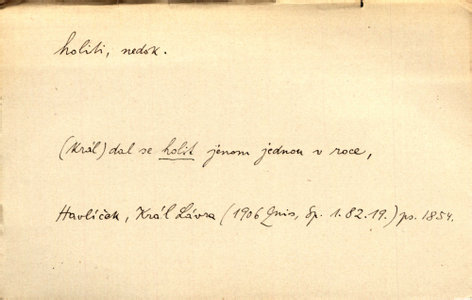 holiti, nedok.
(Král) dal se holit jenom jednou v roce,
Havlíček, Král Lávra (1906 Quis, Sp. 1.82.19.) ps. 1854.